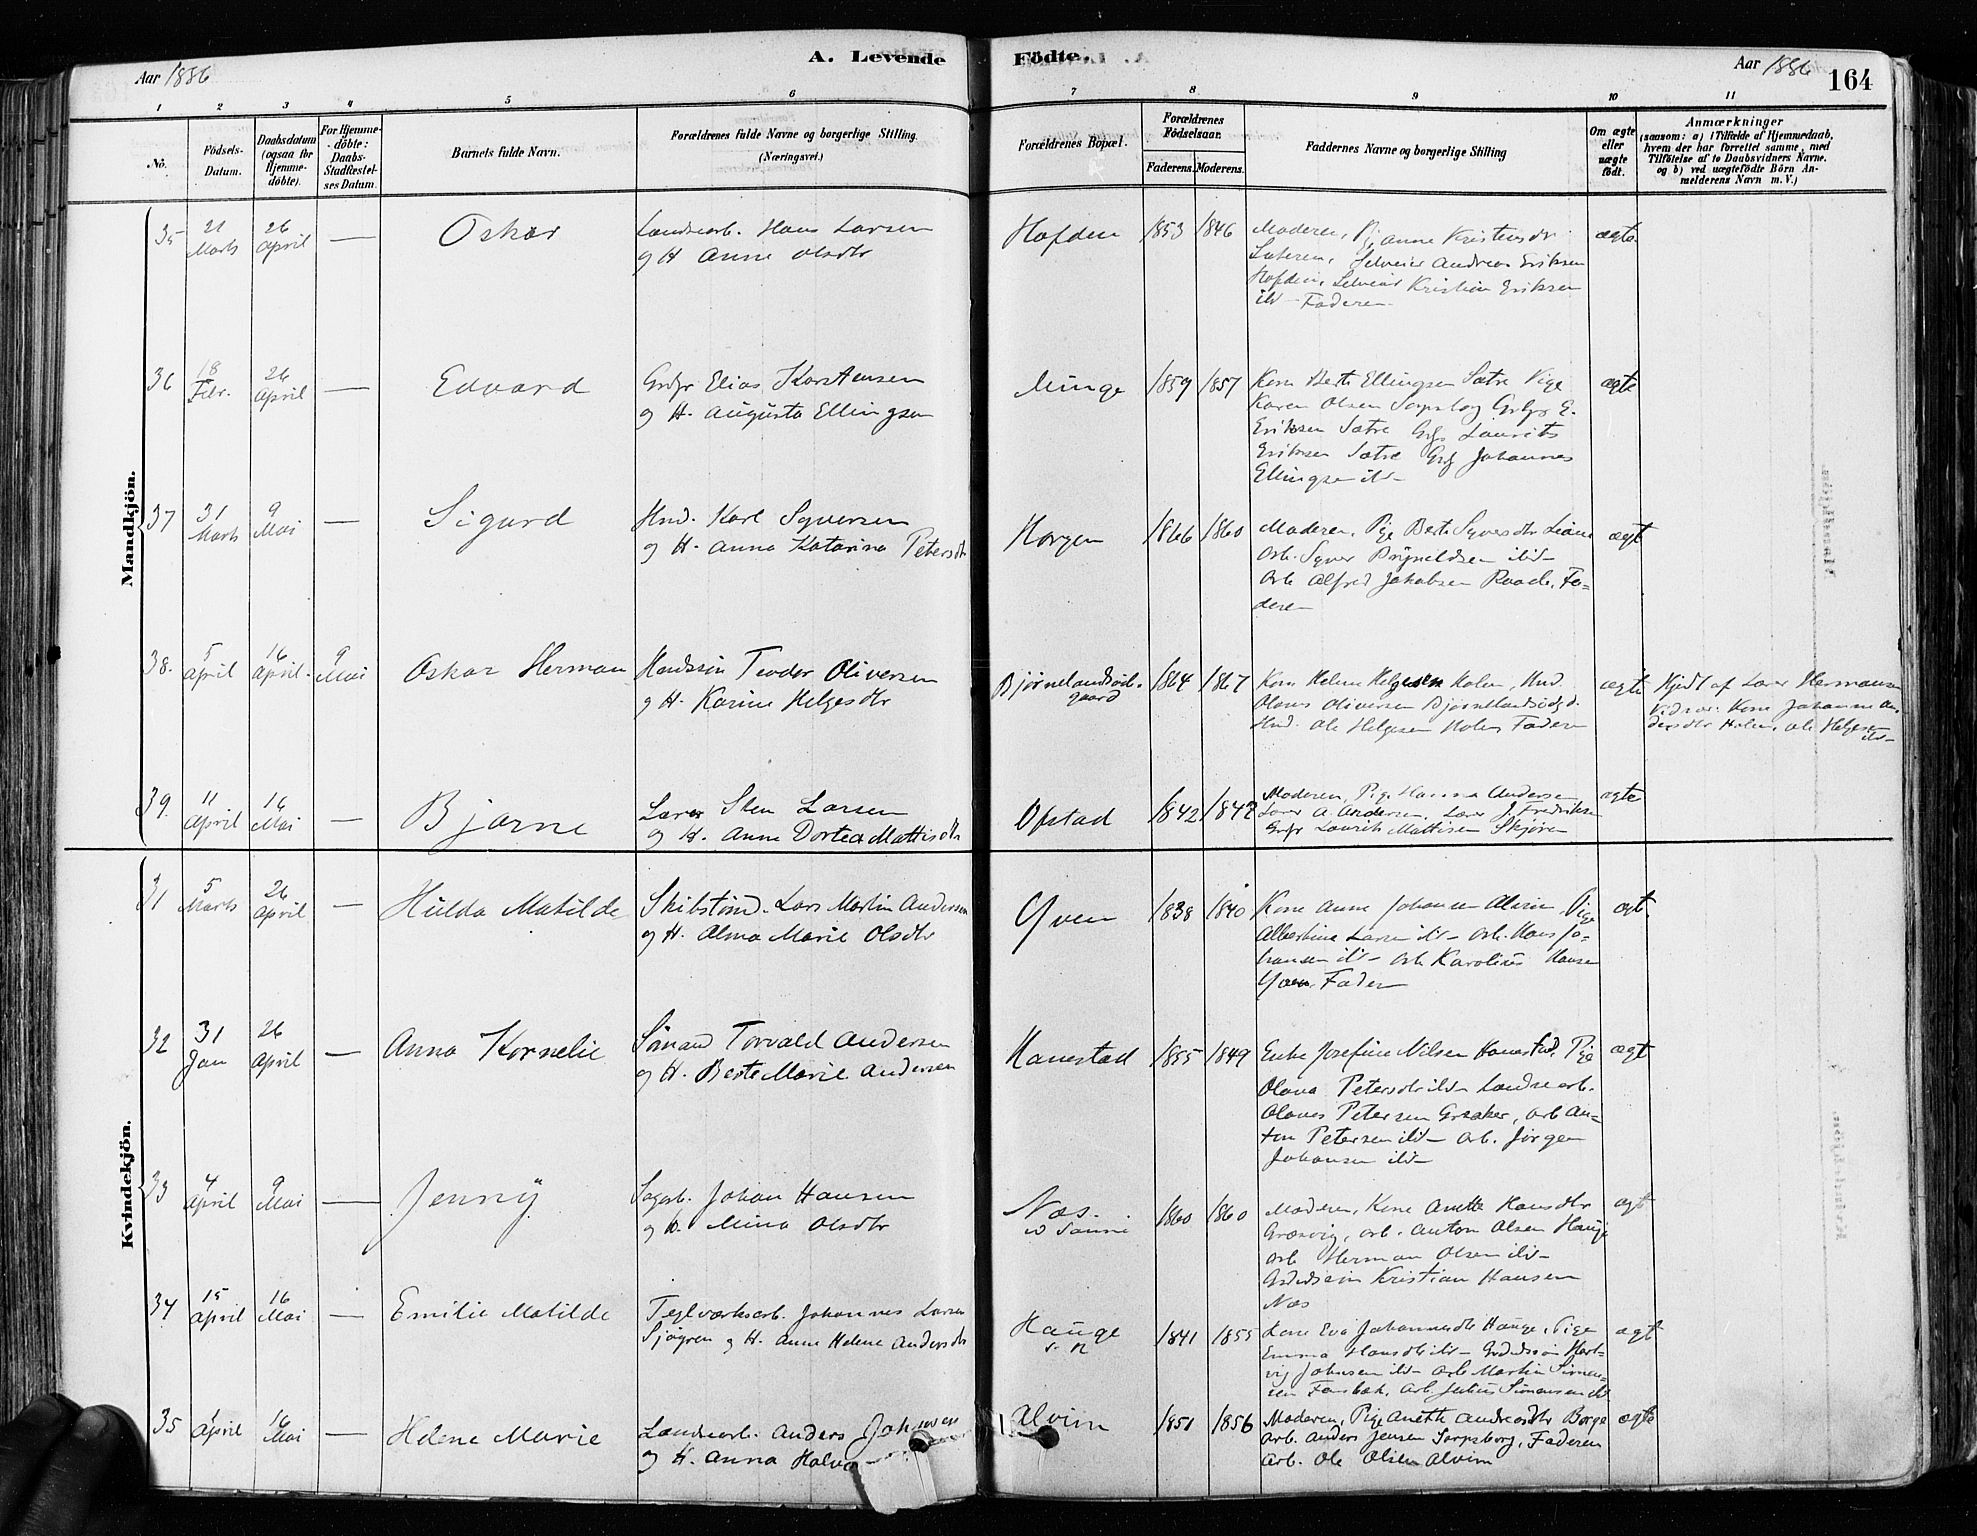 A. Levende Födte.
Aar 1886
Aar 1886 164
1 2 3 4 5 6 7 8 9 10 11
No.
Födsels-Datum.
Daabsdatum (ogsaa for Hjemme-döbte).
For Hjemme-döbte: Daabs-Stadfæstel-ses Datum.
Barnets fulde Navn.
Forældrenes fulde Navne og borgerlige Stilling. (Næringsvei.)
Forældrenes Bopæl.
Forældrenes Födselsaar.
Faderens. Moderens.
Faddernes Navne og borgerlige Stilling
Om ægte eller uægte födt.
Anmærkninger
(saasom: a) i Tilfælde af Hjemmedaab, hvem der har forrettet samme, med Tilföielse af to Daabsvidners Navne, og b) ved uægtefödte Börn Anmelderens Navn m. V.)
Mandkjön.
35 21 Marts 26 April — Oskar
Landsearb. Hans Larsen
og H. Anne Olsdtr
Hafden 1853 1846
Moderen, Pige Anne Kristensdtr
Andreas Eriksen
Hafden, Kristian Eriksen
ibd— Faderen
ægte
36 18 Febr. 26 April — Edvard
Grdbr Elias Karstensen
og H. Augusta Ellingsen
Minge 1859 1857
Kone Berte Ellingsen Sætre Pige
Karen Olsen Sarpsborg Grdbr E.
Eriksen Sætre Laurits
Eriksen Sætre Johannes
Ellingsen ibd—
ægte
37 31 Marts 9 Mai — Sigurd
Hmd. Karl Syversen
og H. Anna Katarina Petersdtr
Horgen 1866 1860
Moderen, Pige Berte Syversdtr
Arb. Syver Brynildsen ibd—
Arb Alfred Jakobsen Raade, Fa-
deren
ægt
38. 5 April 16 April 9 Mai Oskar Herman
Teodor Oliversen
og H. Karine Helgesdtr
Bjørnelandsød-
gaard
1864 1867
Kone Helene Helgesen Holen, Hmd.
Olaus Oliversen Bjørnelandsødgd.
Hmd. Ole Helgesen Holen Faderen
ægte
Hjdt af Lærer Hermansen
Vidner: Kone Johanne An-
dersdtr Holen, Ole Helgesen
ibd—
39. 11 April 16 Mai — Bjarne
Lærer Sten Larsen
og H. Anne Dortea Mattisdtr
Ofstad 1842 1842
Moderen, Pige Hanna Andersen
Lærer A. Andersen, Lærer J. Fredriksen
Grdbr Laurits Mattisen Skjøren
ægte
Kvindekjön.
31 5 Marts 26 April — Hulda Matilde
Skibstømd. Lars Martin Andersen
og H. Alma Marie Olsdtr
Yven 1838 1840
Kone Anne Johansen Alvim Pige
Albertine Larsen ibd— Arb. Hans Jo-
hansen ibd— Arb Karolius Hansen
Yven, Fader
ægt.
32 31 Jan 26 April — Anna Kornelie
Sömand Torvald Andersen
og H. Berte Marie Andersen
Hanestad 1855 1849
Enke Josefine Nilsen Hanestad, Pige
Olava Petersdtr ibd— Landsearb.
Olaves Petersen Greaker, Arb An-
ton Petersen ibd— Arb. Jørgen
Johansen ibd—
ægt
33 4 April 9 Mai — Jenny
Sagarb. Johan Hansen
og H. Mina Olsdtr
Næs.
1860 1860
Moderen, Kone Anette Hansdtr
Græsvig, Arb. Anton Olsen Hauge
Arb Herman Olsen ibd—
Kristian Hansen
Næs
ægt
34 15 April 16 Mai — Emilie Matilde
Teglværksarb. Johannes Larsen
Sjögren og H. Anne Helene Andersdtr
Hauge
1841 1855
Kone Eva Johannesdtr Hauge, Pige
Emma Hansdtr ibd— Hart-
vig Johnsen ibd— Arb Martin Simon-
sen Arb. Julius Simonsen ibd
ægt
35 1 April 16 Mai — Helene Marie
Landsearb. Anders
og H. Anna
Alvim 1851 1856
Moderen, Pige Anette Andreasdtr Borge
Arb. Anders Jensen Sarpsborg, Faderen
Arb. Ole Olsen Alvim
ægte